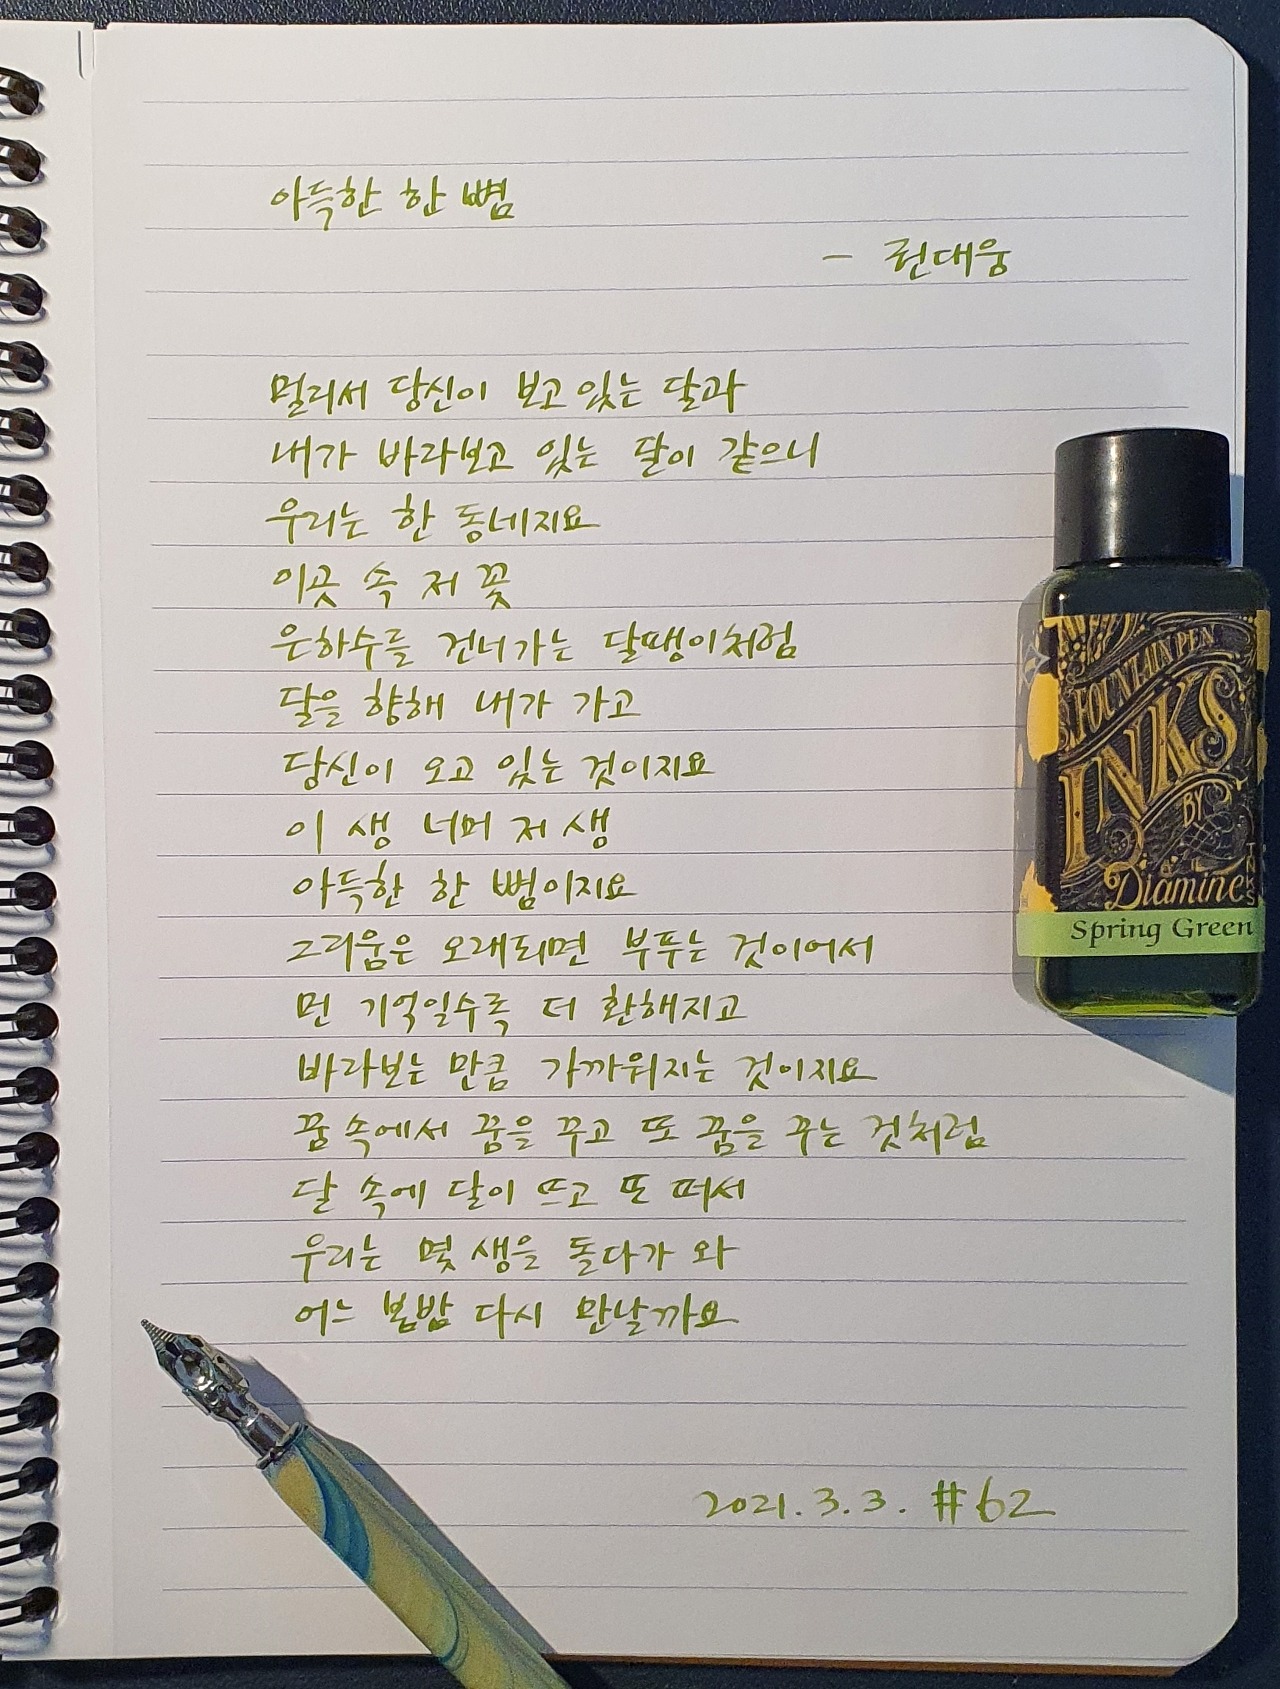 아득한 한 뼘
- 권대웅
멀리서 당신이 보고 있는 달과
내가 바라보고 있는 달이 같으니
우리는 한 동네지요
이곳 속 저 꽃
은하수를 건너가는 달팽이처럼
달을 향해 내가 가고
당신이 오고 있는 것이지요
이 생 너머 저 생
아득한 한 뼘이지요
그리움은 오래되면 부푸는 것이어서
먼 기억일수록 더 환해지고
바라보는 만큼 가까워지는 것이지요
꿈 속에서 꿈을 꾸고 또 꿈을 꾸는 것처럼
달 속에 달이 뜨고 또 떠서
우리는 몇 생을 돌다가 와
어느 봄밤 다시 만날까요
2021.3.3. #62
FOUNTAIN PEN
INKS
BY
Diamine
Spring Green